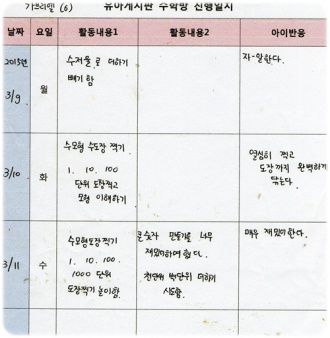 가브리엘 (6) 유아게시판 수학방 진행일지
날짜 요일 활동내용1 활동내용2 아이반응
2015년
3/9 월
수저울로 더하기
빼기 함
자-알한다.
3/10 화
수모형 수도장 찍기
1. 10. 100
단위 도장찍고
모형 이해하기
열심히 찍고
도장까지 완벽하게
닦는다
3/11 수
수모형도장찍기
1. 10. 100.
1000 단위
도장찍기 놀이함.
큰숫자 만들기를 너무
재미있어 했다.
천단위 백단위 더하기
시도함.
매우 재밌어한다.